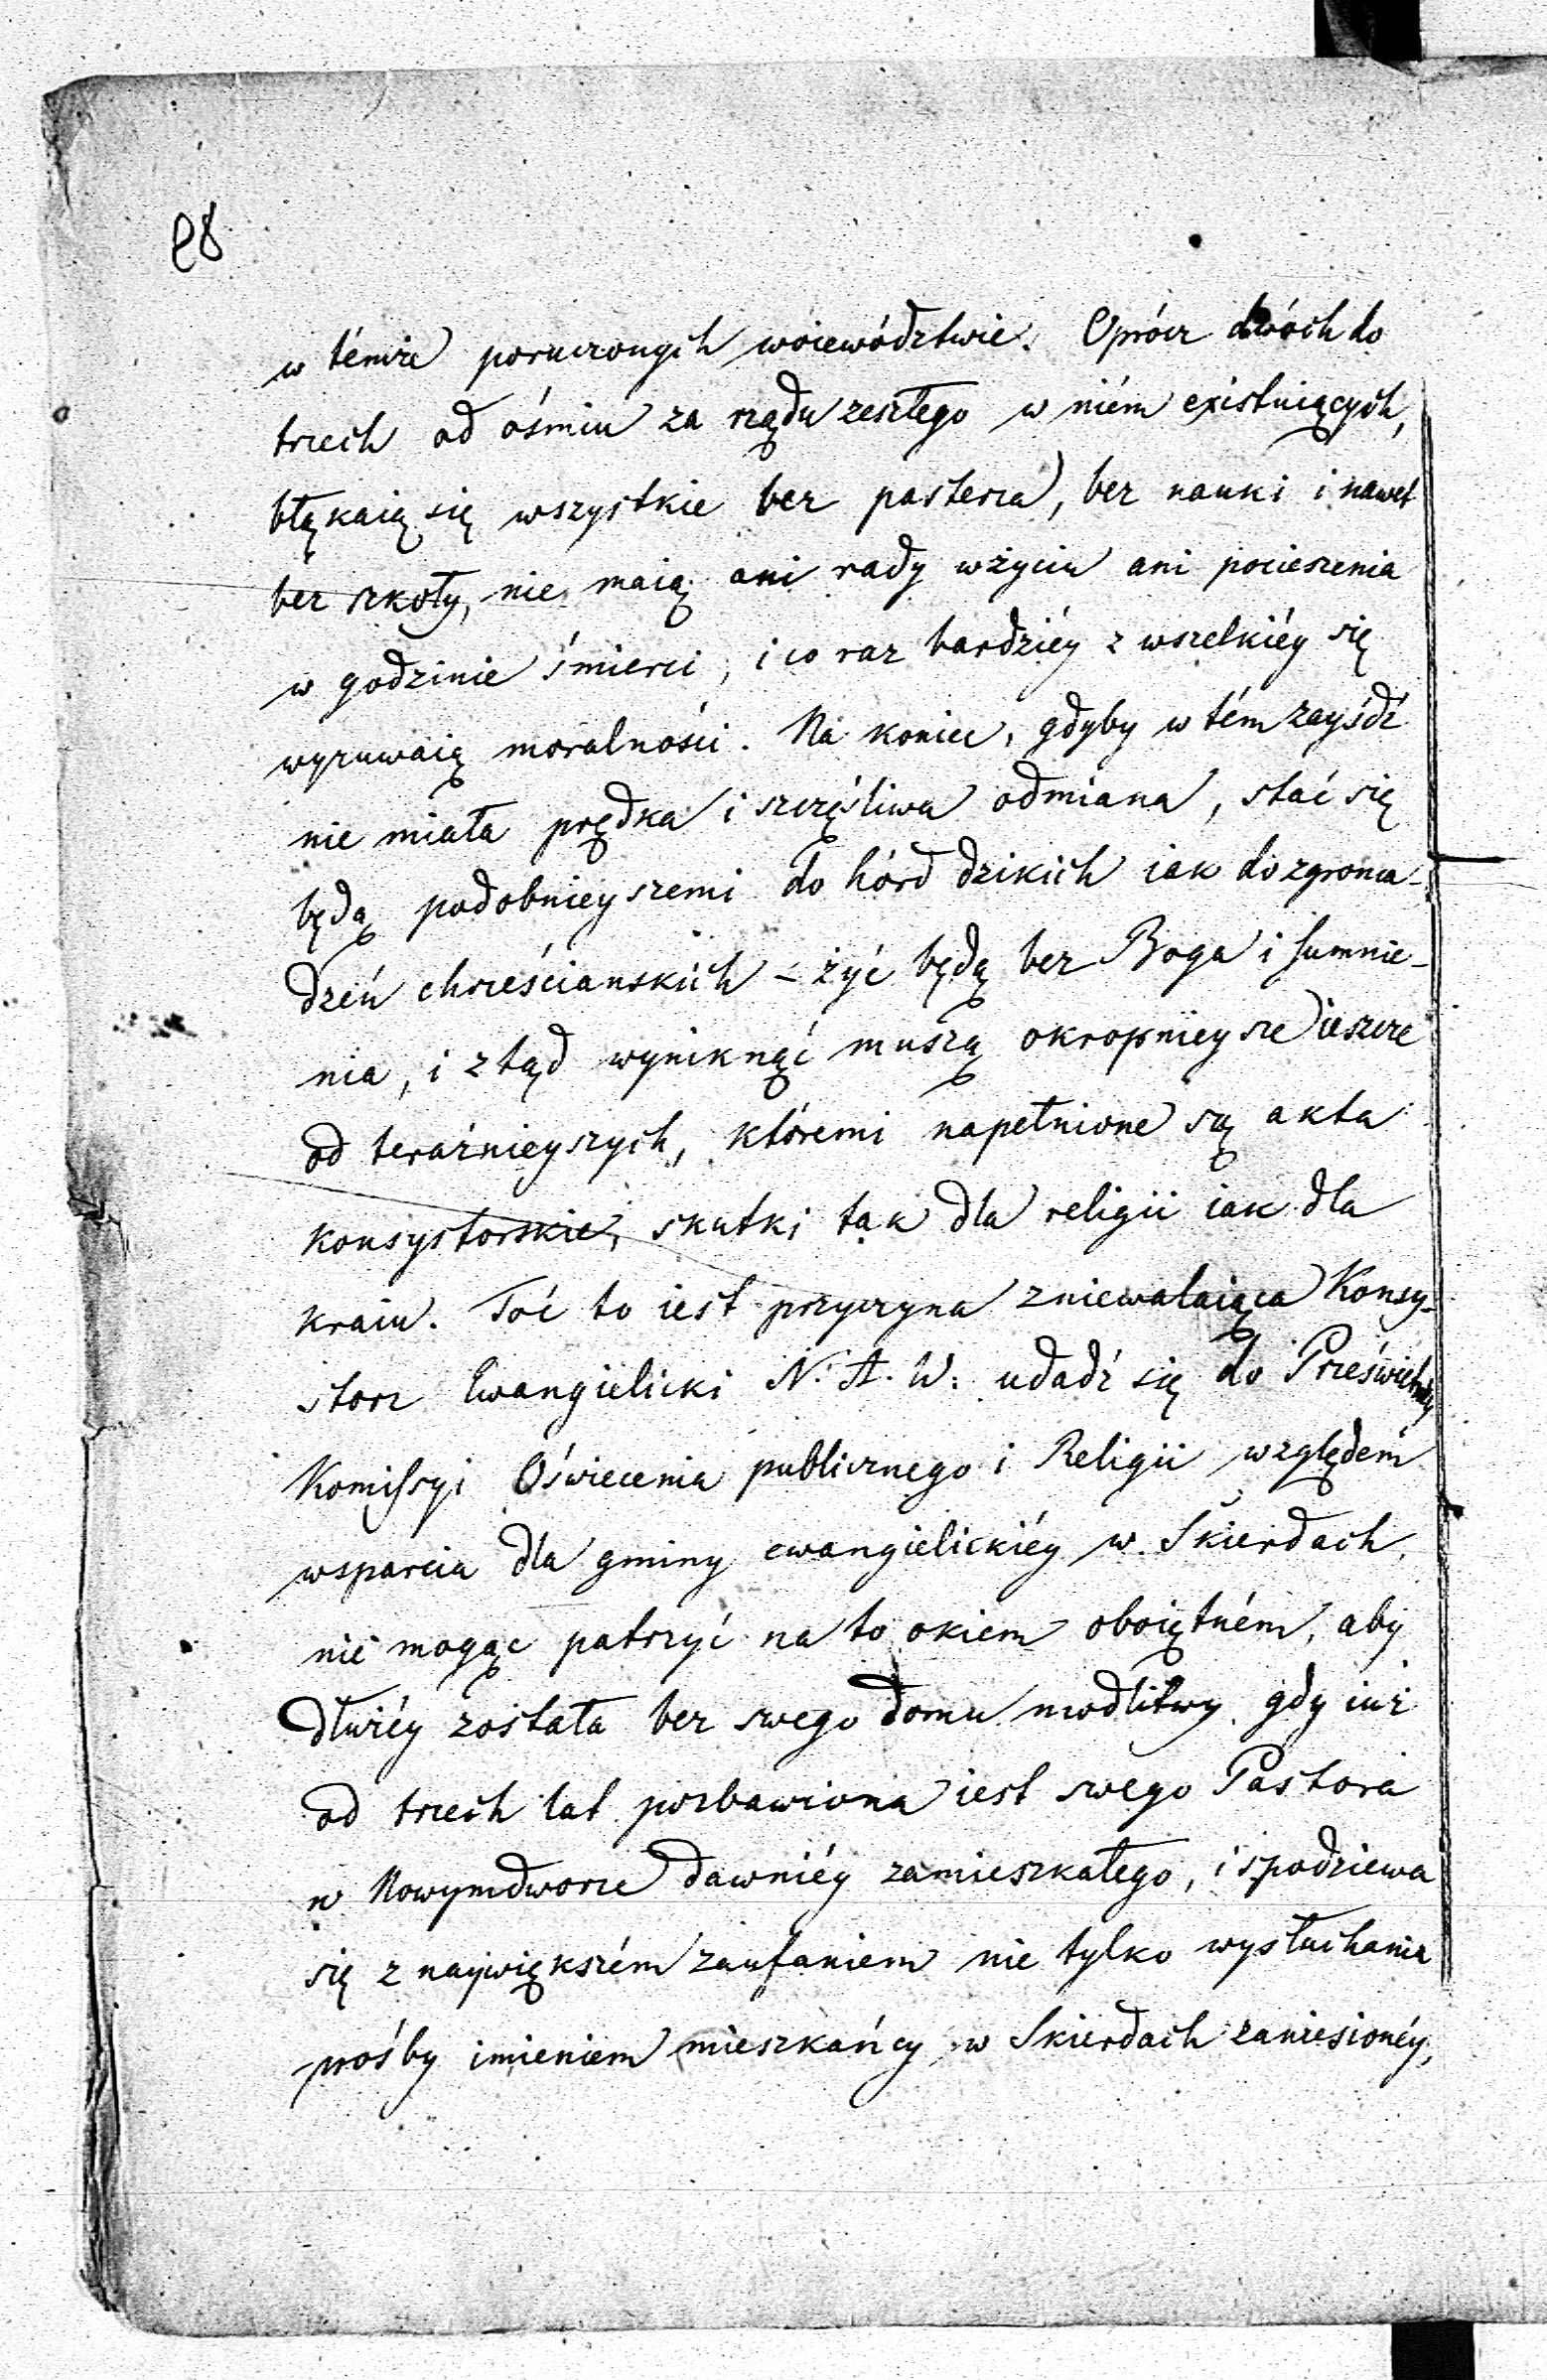 98
w témże poruczonych woiewództwie. Oprócz dwóch do
trzech od ośmiu za rządu zeszłego w niém existuiących,
błąkaią się wszystkie bez pasterza, bez nauki i nawet
bez szkoły, nie maią ani rady w życiu ani pocieszenia
w godzinie śmierci, i co raz bardziéy z wszelkiéy się
wyzuwaią moralności. Na koniec, gdyby w tém zayśdź
nie miała prędka i szczęśliwa odmiana, stać się
będą podobnieyszemi do hórd dzikich iak do zgroma-
dzeń chrześcianskich – żyć będą bez Boga i sumnie-
nia, i ztąd wyniknąć muszą okropnieysze ieszcze
od teraźnieyszych, któremi napełnione są akta
konsystorskie, skutki tak dla religii iak dla
kraiu. Toć to iest przyczyna zniewalaiąca Konsy-
storz Ewangielicki N. A. W. udadź się do Prześwietnéy
Komissyi Oświecenia publicznego i Religii względem
wsparcia dla gminy ewangielickiéy w Skierdach,
nie mogąc patrzyć na to okiem oboiętném, aby
dłużéy została bez swego domu modlitwy, gdy iuż
od trzech lat pozbawiona iest swego Pastora
w Nowymdworze dawniéy zamieszkałego, i spodziewa
się z naywiększém zaufaniem nie tylko wysłuchania
prośby imieniem mieszkańcy w Skierdach zaniesionéy,